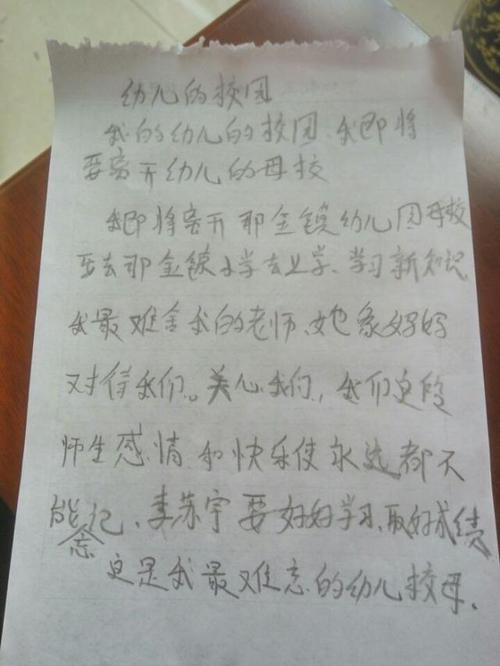 幼儿的校园
我的幼儿的校园、我即将
要离开幼儿的母校
我即将离开那金镇幼儿园母校
要去那金镇小学去上学、学习新知识
我最难舍我的老师、她象好好
对待我们。关心我们，我们这段
师生感情和快乐使永远都不
能忘记、李苏宁要好好学习、取好成绩
这是我最难忘的幼儿校母、